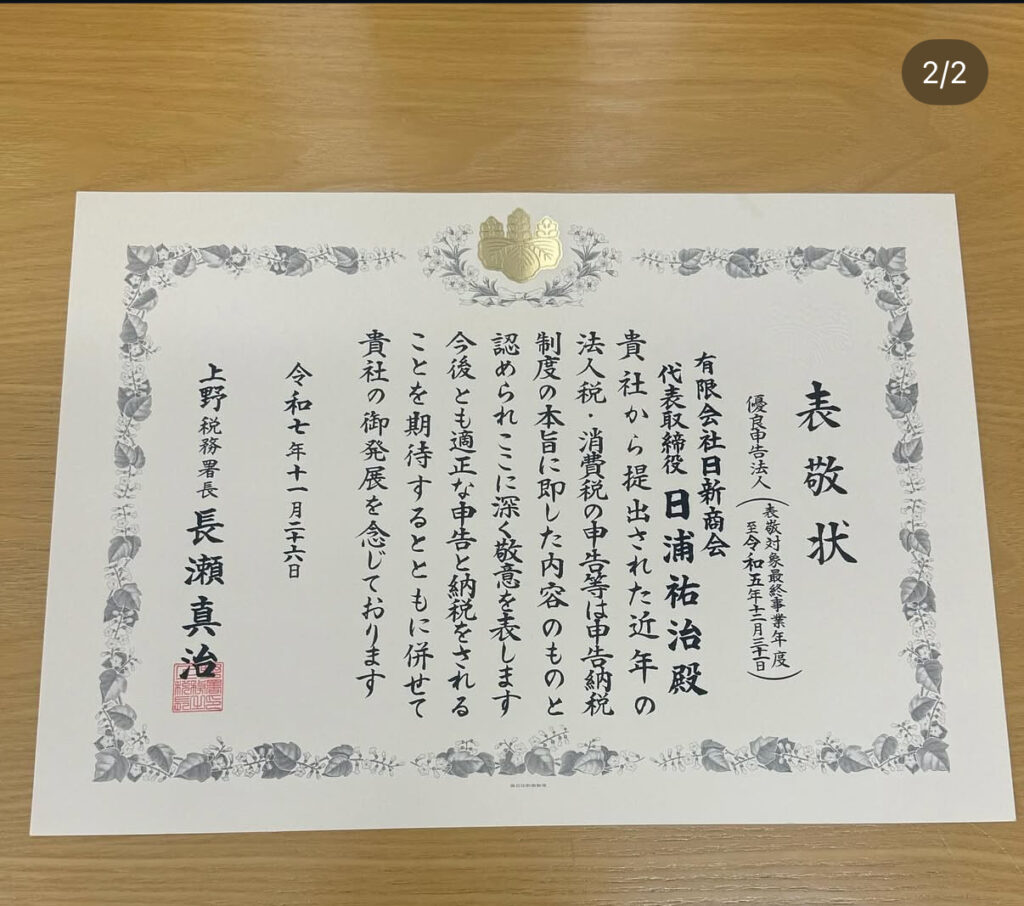 2/2
表敬状
優良申告法人(表敬対象最終事業年度
至令和五年十二月三十一日)
有限会社日新商会
代表取締役 日浦祐治殿
貴社から提出された近年の
法人税・消費税の申告等は申告納税
制度の本旨に即した内容のものと
認められここに深く敬意を表します
今後とも適正な申告と納税をされる
ことを期待するとともに併せて
貴社の御発展を念じております
令和七年十一月二十六日
上野税務署長 長瀬真治